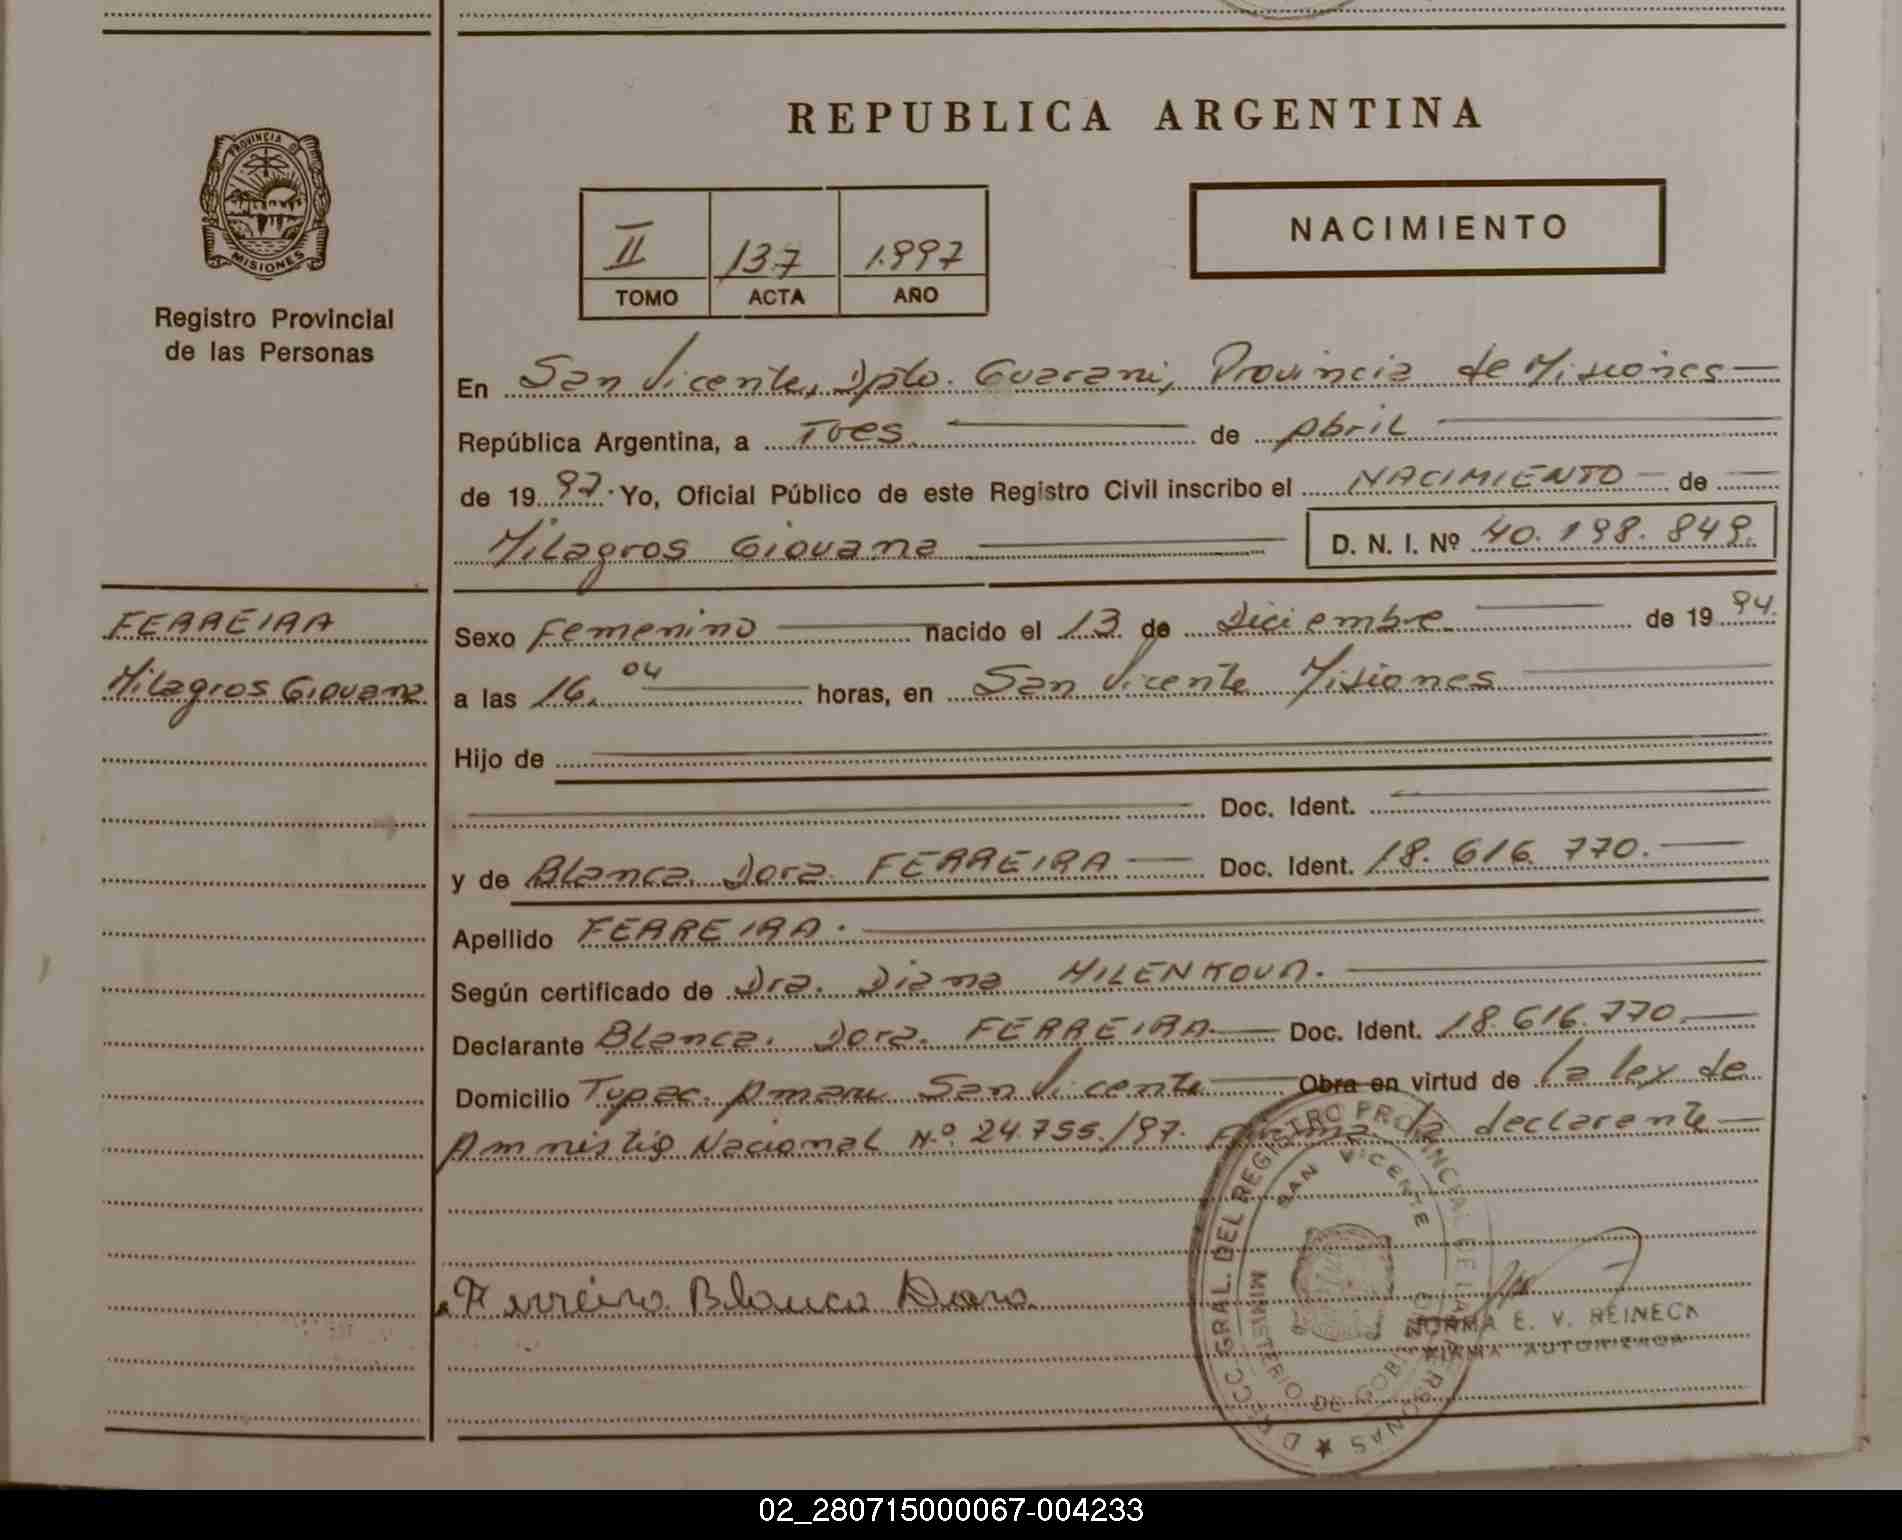 REPUBLICA ARGENTINA
PROVINCIA D MISIONES
Registro Provincial
de las Personas
II 137 1.997
TOMO ACTA AÑO
NACIMIENTO
En San Vicente, Dpto. Guarani, Provincia de Misiones
República Argentina, a Tres de Abril
de 1997. Yo, Oficial Público de este Registro Civil inscribo el NACIMIENTO de
Milagros Giovana D. N. I. Nº 40.198.849.
FERREIRA
Milagros Giovana
Sexo Femenino nacido el 13 de Diciembre de 1994.
a las 16.04 horas, en San Vicente Misiones
Hijo de
Doc. Ident.
y de Blanca Dora FERREIRA Doc. Ident. 18.616.770.
Apellido FERREIRA.
Según certificado de Dra. Diana MILENKOVA.
Declarante Blanca. Dora. FERREIRA Doc. Ident. 18.616.770.
Domicilio Tupac. Amaru San Vicente Obra en virtud de la ley de
Amnistía Nacional N.º 24.755./97. Firma la declarante
Ferreira Blanca Dora
DIRECC. GRAL. DEL REGISTRO PROVINCIAL DE LAS PERSONAS
SAN VICENTE
MINISTERIO DE GOBI
NORMA E. V. REINECK
FIRMA AUTORIZADA
02_280715000067-004233